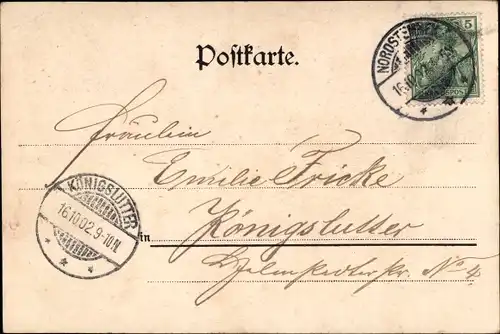 Postkarte.
NORDSTEMMEN
16.10.
5
REICHSPOST
Fräulein
Emilie Fricke
KÖNIGSLUTTER
16.10.02.9-10N.
in Königslutter
Helmstedter Str. No 4